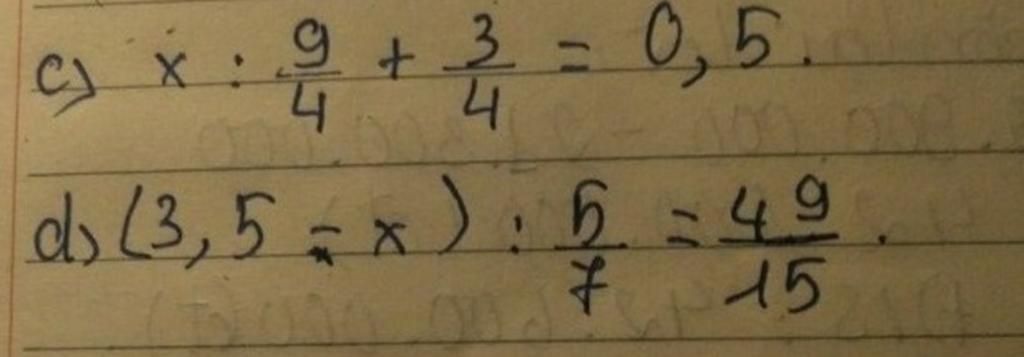 c) x : 9/4 + 3/4 = 0,5.
d) (3,5 - x) : 5/7 = 49/15.